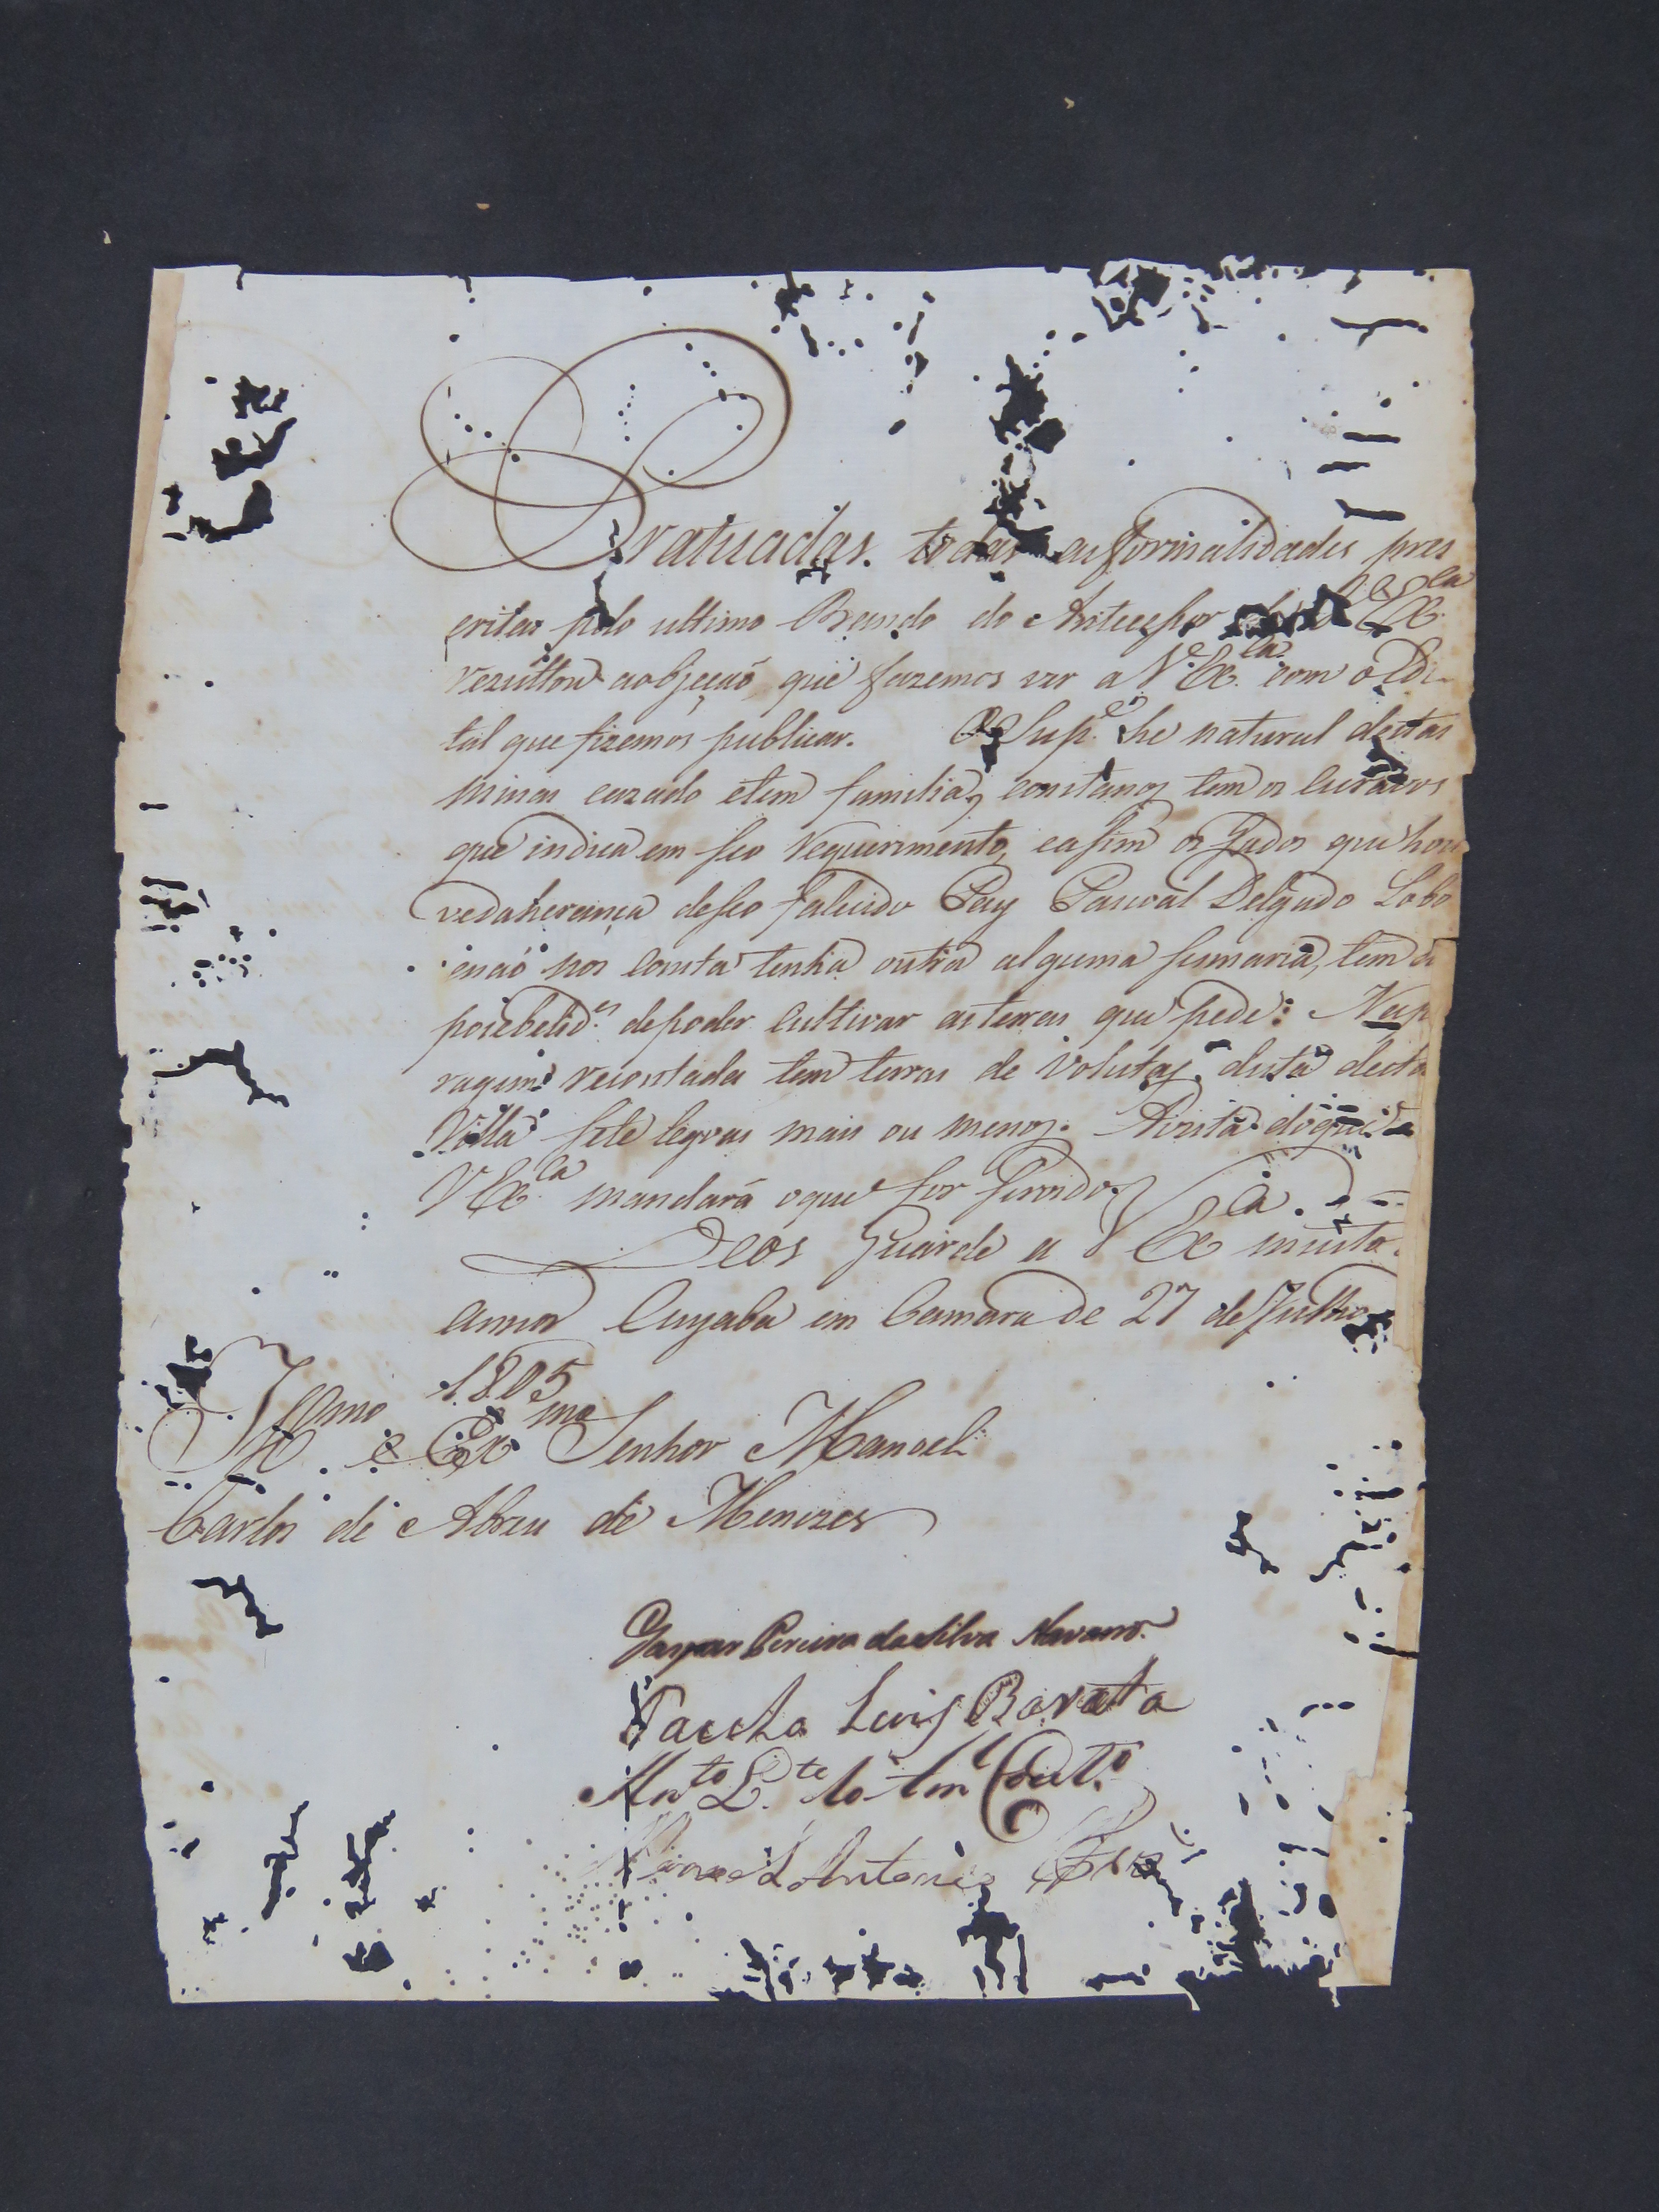 Pratticadas todas as formalidades pres
critas pelo ultimo Bando do Antecessor de V. Ex.ca
rezultou aobjecçaõ que fazemos ver a V. Ex.ca com o Edi-
tal que fizemos publicar. O Sup.e he natural destas
Minas cazado etem familia, constanos tem os escravos
que indica em seo requerimento, easim os gados que hou
vedaherança deseo falecido Pay Pascoal Delgado Lobo
enaõ nos consta tenha outra alguma sesmaria, tem
posebelid.es depoder cultivar as terras que pede:
ragem recontada tem terras de volutas, dista desta
Villa sete legoas mais ou menos. Avista doque
V Ex.ca mandará oque for servido
Deos Guarde a V Ex.ca muito
annos Cuyaba em Camara de 27 de Julho
1805
Ill.mo e Ex.mo Senhor Manoel
Carlos de Abreu de Menezes
Gaspar Pereira da Silva Navarro.
Paullo Luis Barata
Manoel Antonio